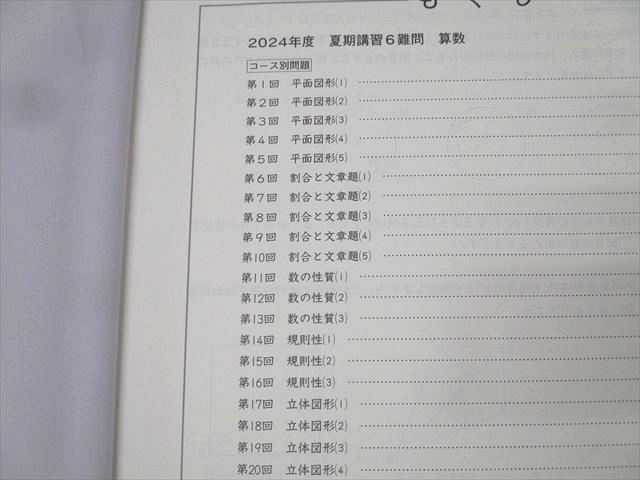 もくじ
2024年度 夏期講習6難問 算数
コース別問題
第1回 平面図形(1)
第2回 平面図形(2)
第3回 平面図形(3)
第4回 平面図形(4)
第5回 平面図形(5)
第6回 割合と文章題(1)
第7回 割合と文章題(2)
第8回 割合と文章題(3)
第9回 割合と文章題(4)
第10回 割合と文章題(5)
第11回 数の性質(1)
第12回 数の性質(2)
第13回 数の性質(3)
第14回 規則性(1)
第15回 規則性(2)
第16回 規則性(3)
第17回 立体図形(1)
第18回 立体図形(2)
第19回 立体図形(3)
第20回 立体図形(4)